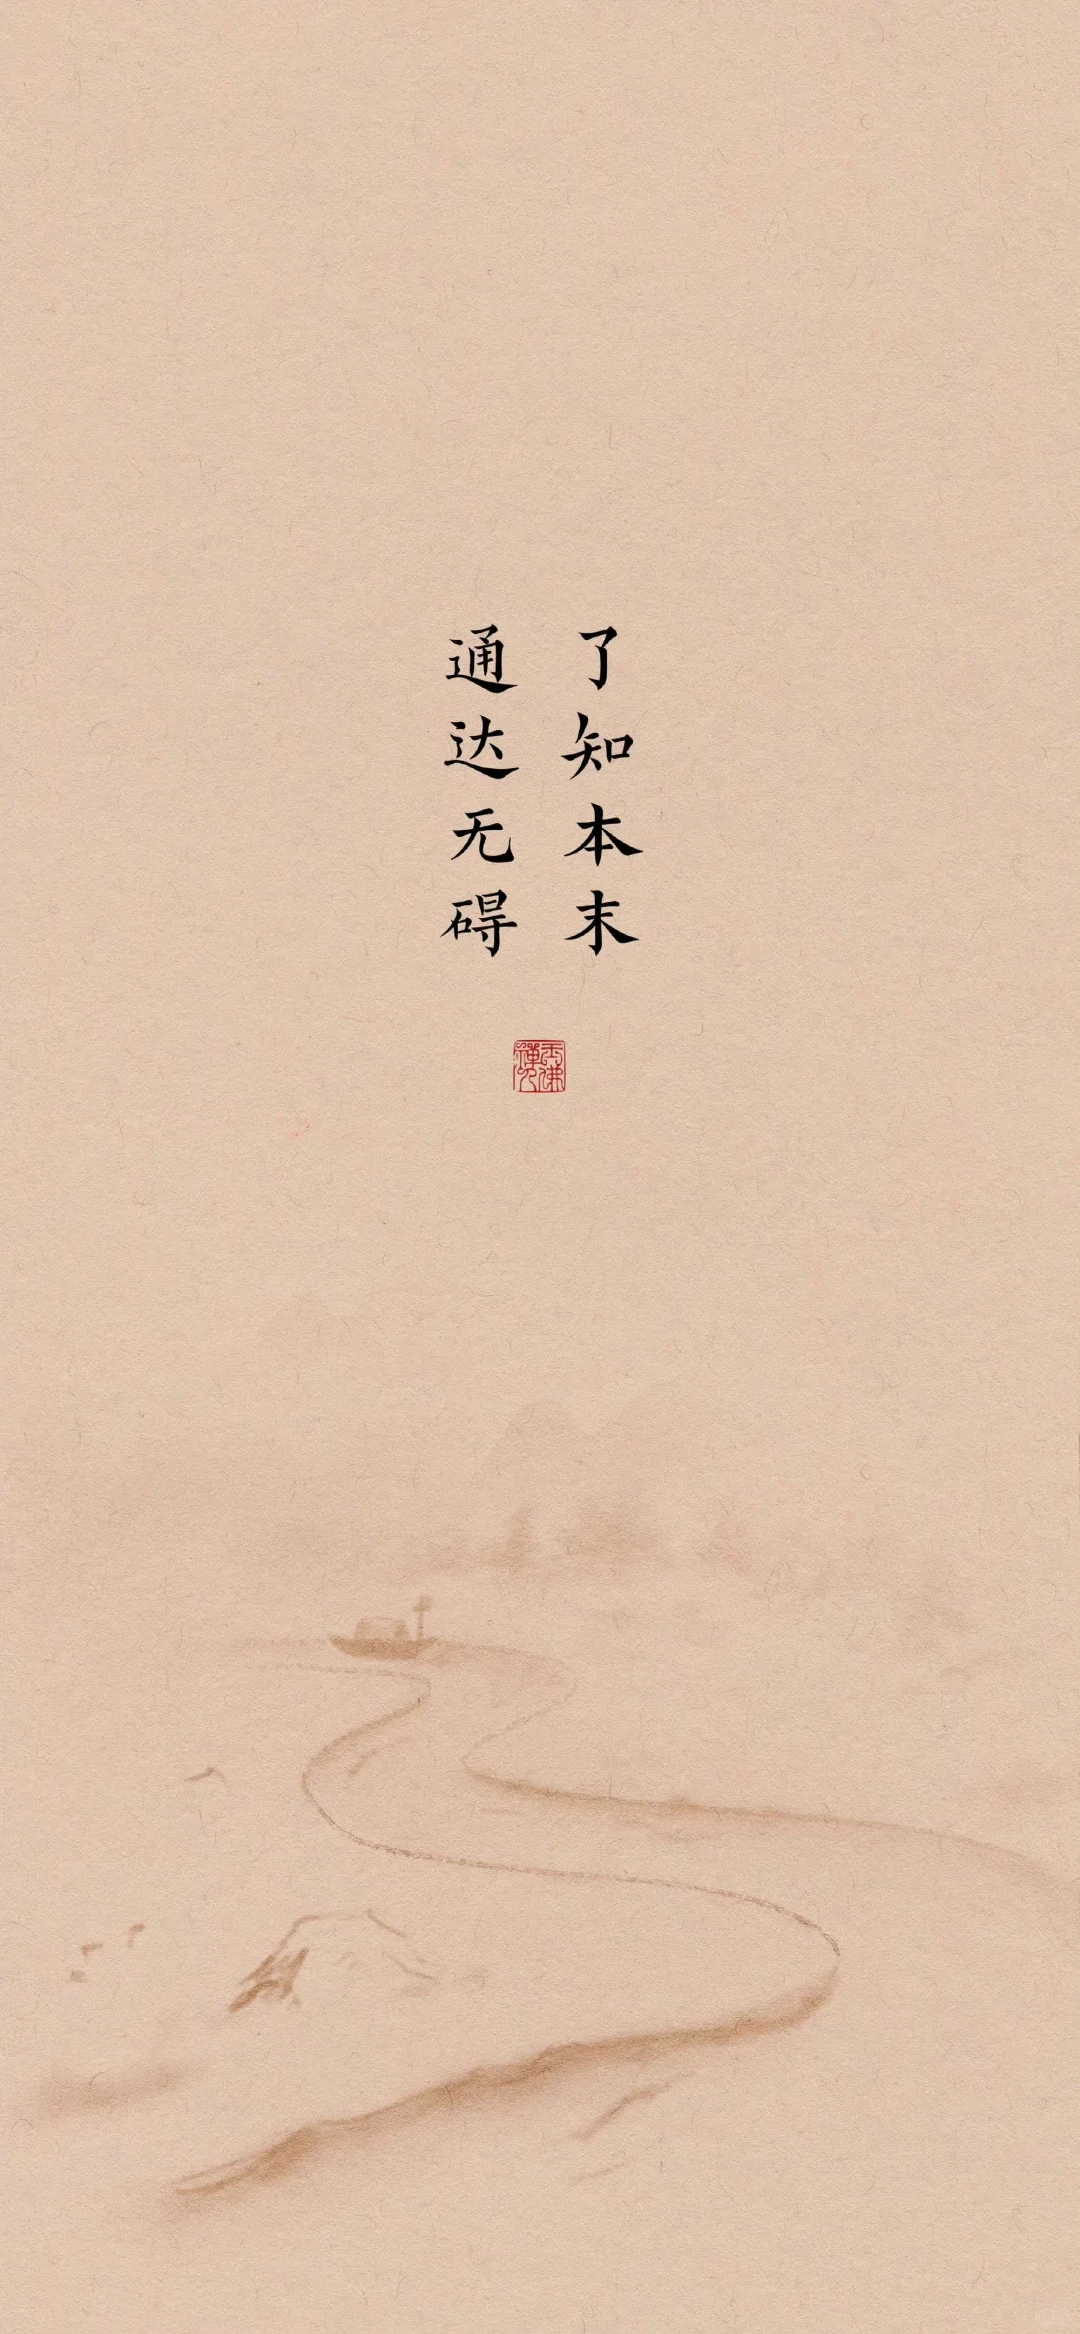 了知本末
通达无碍